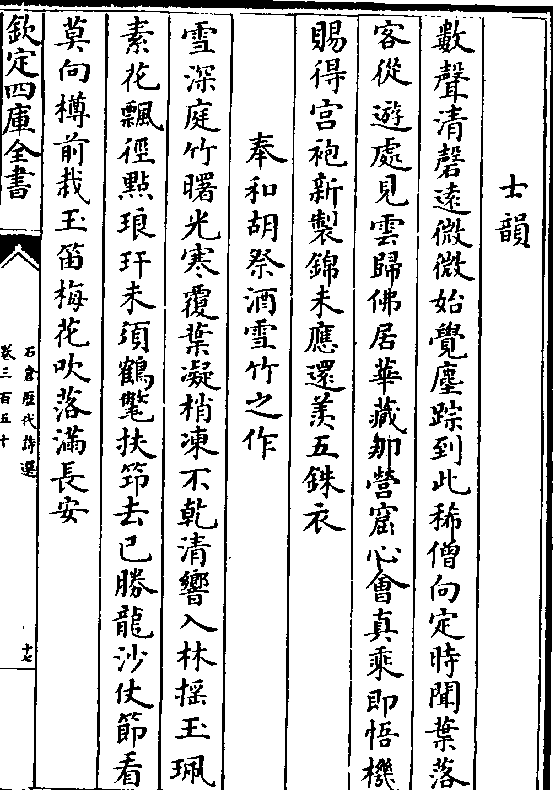 士韻
數聲清磬逺微微始覺塵踪到此稀僧向定時聞葉落
客從遊處見雲歸佛居華藏那營窟心會真乘即悟機
賜得宫袍新製錦未應還羡五銖衣
奉和胡祭酒雪竹之作
雪深庭竹曙光寒覆葉凝梢凍不乾清響入林揺玉珮
素花飄徑點琅玕未須鶴氅扶笻去已勝龍沙仗節看
莫向樽前栽玉笛梅花吹落滿長安
欽定四庫全書
石倉歴代詩選
卷三百五十
十七